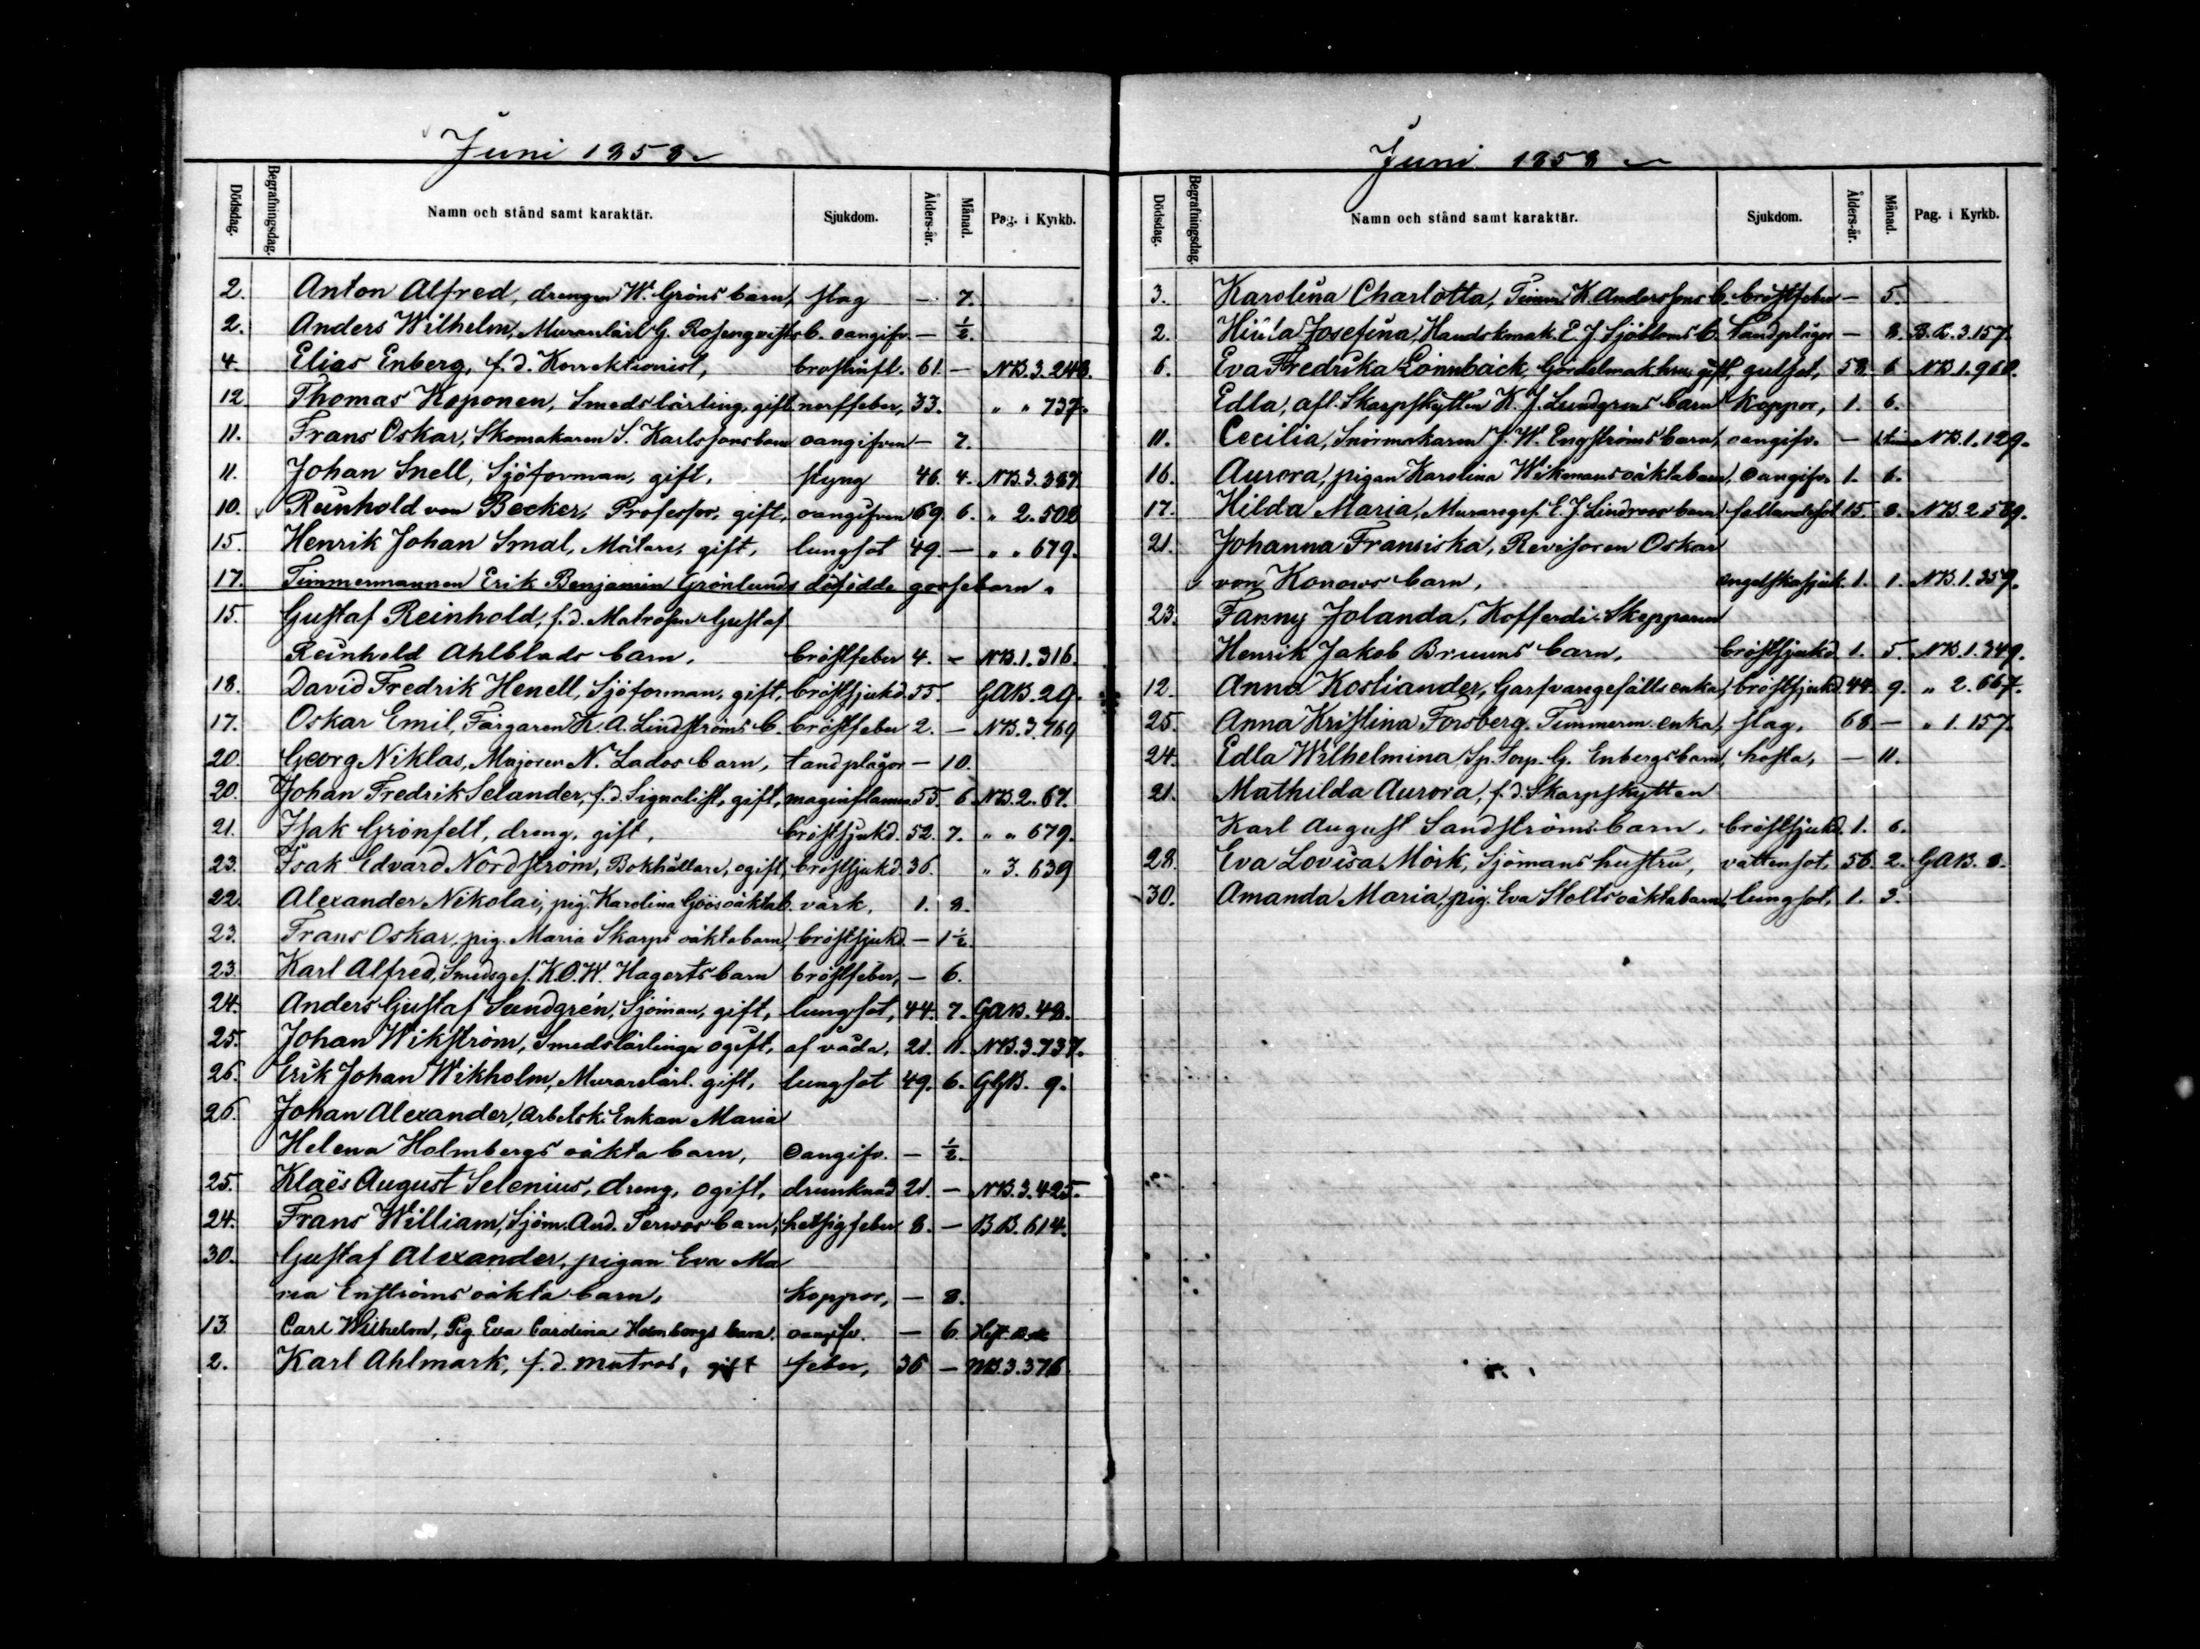 Juni 1858
Dödsdag. Begrafningsdag. Namn och stånd samt karaktär. Sjukdom. Ålders-år. Månad. Pag. i Kyrkb.
2. Anton Alfred, drengen W. Gröns barn, slag — 7.
2. Anders Wilhelm, Murarelärl G. Rosenqvists b. oangifv. — ½.
4. Elias Enberg, f.d. Korrektionist, bröstinfl. 61. — NB.3.248.
12. Thomas Koponen, Smedslärling, gift nerffeber, 33. " " 737.
11. Frans Oskar, Skomakaren S. Karlssons barn oangifven — 7.
11. Johan Snell, Sjöforman, gift, styng 46. 4. NB.3.387
10. Reinhold von Becker, Professor, gift, oangifven 69. 6. " 2.502
15. Henrik Johan Smal, Målare, gift, lungsot 49. — " " 679.
17. Timmermannen Erik Benjamin Grönlunds dödfödde gossebarn.
15. Gustaf Reinhold, f.d. Matrosen Gustaf
Reinhold Ahlblads barn, bröstfeber 4. — NB.1.316.
18. David Fredrik Henell, Sjöforman, gift, bröstsjukd. 55. GAB.29.
17. Oskar Emil, Färgaren K. A. Lindströms b. bröstfeber 2. — NB.3.769
20. Georg Niklas, Majoren N. Lados barn, tandplågor — 10.
20. Johan Fredrik Selander, f.d. Signalist, gift, maginflamm 55. 6. NB.2.67.
21. Isak Grönfelt, dreng, gift, bröstsjukd. 52. 7. " " 679.
23. Isak Edvard Nordström, Bokhållare, ogift, bröstsjukd. 36. " 3. 639
22. Alexander Nikolai, pig. Karolina Göös oäkta b. värk, 1. 8.
23. Frans Oskar, pig. Maria Skarps oäkta barn, bröstsjukd. — 1½.
23. Karl Alfred, Smedsges. K.O.W. Hagerts barn bröstfeber, — 6.
24. Anders Gustaf Sundgrén, Sjöman, gift, lungsot, 44. 7. GAB.48.
25. Johan Wikström, Smedslärlinge ogift, af våda, 21. 11. NB.3.737.
26. Erik Johan Wikholm, Murarelärl. gift, lungsot 49. 6. GGB. 9.
26. Johan Alexander, Arbetsk. Enkan Maria
Helena Holmbergs oäkta barn, oangifv. — ½.
25. Klaës August Selenius, dreng, ogift, drunknad 21. — NB.3.425.
24. Frans William, Sjöm. And. Terwos barn, hetsigfeber 8. — BB.614.
30. Gustaf Alexander, pigan Eva Ma
ria Enströms oäkta barn, Koppor, — 8.
13. Carl Wilhelm, Pig Eva Carolina Holmbergs barn. oangifv. — 6.
2. Karl Ahlmark, f.d. matros, gift feber, 36 — NB.3.376
Juni 1858
Dödsdag. Begrafningsdag. Namn och stånd samt karaktär. Sjukdom. Ålders-år. Månad. Pag. i Kyrkb.
3. Karolina Charlotta, Timm. K. Anderssons b. bröstfeber — 5.
2. Josefina, Handskmak. E. J. Sjöbloms b. tandplågor — 8. B.R.3.157.
6. Eva Fredrika Lönnbäck, Gördelmak. hru gift, gulsot, 58. 6. NB.1.968.
Edla, afl. Skarpskytten K. J. Lundgrens barn Koppor, 1. 6.
11. Cecilia, Snörmakaren J. W. Engströms barn, oangifv. — NB.1.129.
16. Aurora, pigan Karolina Wikmans oäkta barn, oangifv. 1. 6.
17. Hilda Maria, Murareges. E. J. Lindroos barn fallandesot 15. 8. NB.2.589.
21. Johanna Fransiska, Revisoren Oskar
von Konows barn, engelskasjuk. 1. 1. NB.1.359.
23. Fanny Jolanda, Kofferdi-Skepparen
Henrik Jakob Bruuns barn, bröstsjukd. 1. 5. NB.1.349.
12. Anna Kosliander, Garfvaregesälls enka, bröstsjukd. 44. 9. " 2.667.
25. Anna Kristina Forsberg, Timmerm. enka, slag, 68 — " 1.157.
24. Edla Wilhelmina, G. Enbergs barn, hosta, — 11.
21. Mathilda Aurora, f.d. Skarpskytten
Karl August Sandströms barn, bröstsjukd. 1. 6.
28. Eva Lovisa Mörk, Sjömans hustru, vattensot, 56. 2. GAB. 8.
30. Amanda Maria, pig. Eva Stolts oäkta barn, lungsot, 1. 3.